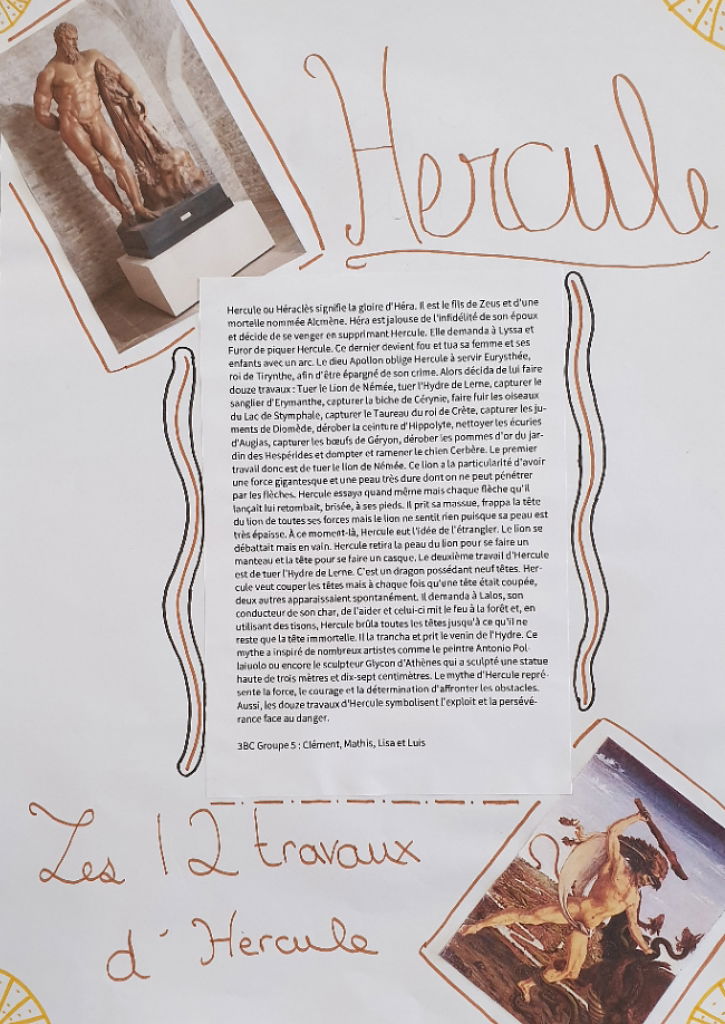 Hercule
Hercule ou Héraclès signifie la gloire d'Héra. Il est le fils de Zeus et d'une
mortelle nommée Alcmène. Héra est jalouse de l'infidélité de son époux
et décide de se venger en supprimant Hercule. Elle demanda à Lyssa et
Furor de piquer Hercule. Ce dernier devient fou et tua sa femme et ses
enfants avec un arc. Le dieu Apollon oblige Hercule à servir Eurysthée,
roi de Tirynthe, afin d'être épargné de son crime. Alors décida de lui faire
douze travaux : Tuer le Lion de Némée, tuer l'Hydre de Lerne, capturer le
sanglier d'Erymanthe, capturer la biche de Cérynie, faire fuir les oiseaux
du Lac de Stymphale, capturer le Taureau du roi de Crète, capturer les ju-
ments de Diomède, dérober la ceinture d'Hippolyte, nettoyer les écuries
d'Augias, capturer les bœufs de Géryon, dérober les pommes d'or du jar-
din des Hespérides et dompter et ramener le chien Cerbère. Le premier
travail donc est de tuer le lion de Némée. Ce lion a la particularité d'avoir
une force gigantesque et une peau très dure dont on ne peut pénétrer
par les flèches. Hercule essaya quand même mais chaque flèche qu'il
lançait lui retombait, brisée, à ses pieds. Il prit sa massue, frappa la tête
du lion de toutes ses forces mais le lion ne sentit rien puisque sa peau est
très épaisse. À ce moment-là, Hercule eut l'idée de l'étrangler. Le lion se
débattait mais en vain. Hercule retira la peau du lion pour se faire un
manteau et la tête pour se faire un casque. Le deuxième travail d'Hercule
est de tuer l'Hydre de Lerne. C'est un dragon possédant neuf têtes. Her-
cule veut couper les têtes mais à chaque fois qu'une tête était coupée,
deux autres apparaissaient spontanément. Il demanda à Lalos, son
conducteur de son char, de l'aider et celui-ci mit le feu à la forêt et, en
utilisant des tisons, Hercule brûla toutes les têtes jusqu'à ce qu'il ne
reste que la tête immortelle. Il la trancha et prit le venin de l'Hydre. Ce
mythe a inspiré de nombreux artistes comme le peintre Antonio Pol-
laiuolo ou encore le sculpteur Glycon d'Athènes qui a sculpté une statue
haute de trois mètres et dix-sept centimètres. Le mythe d'Hercule repré-
sente la force, le courage et la détermination d'affronter les obstacles.
Aussi, les douze travaux d'Hercule symbolisent l'exploit et la persévé-
rance face au danger.
3BC Groupe 5 : Clément, Mathis, Lisa et Luis
Les 12 travaux
d'Hercule